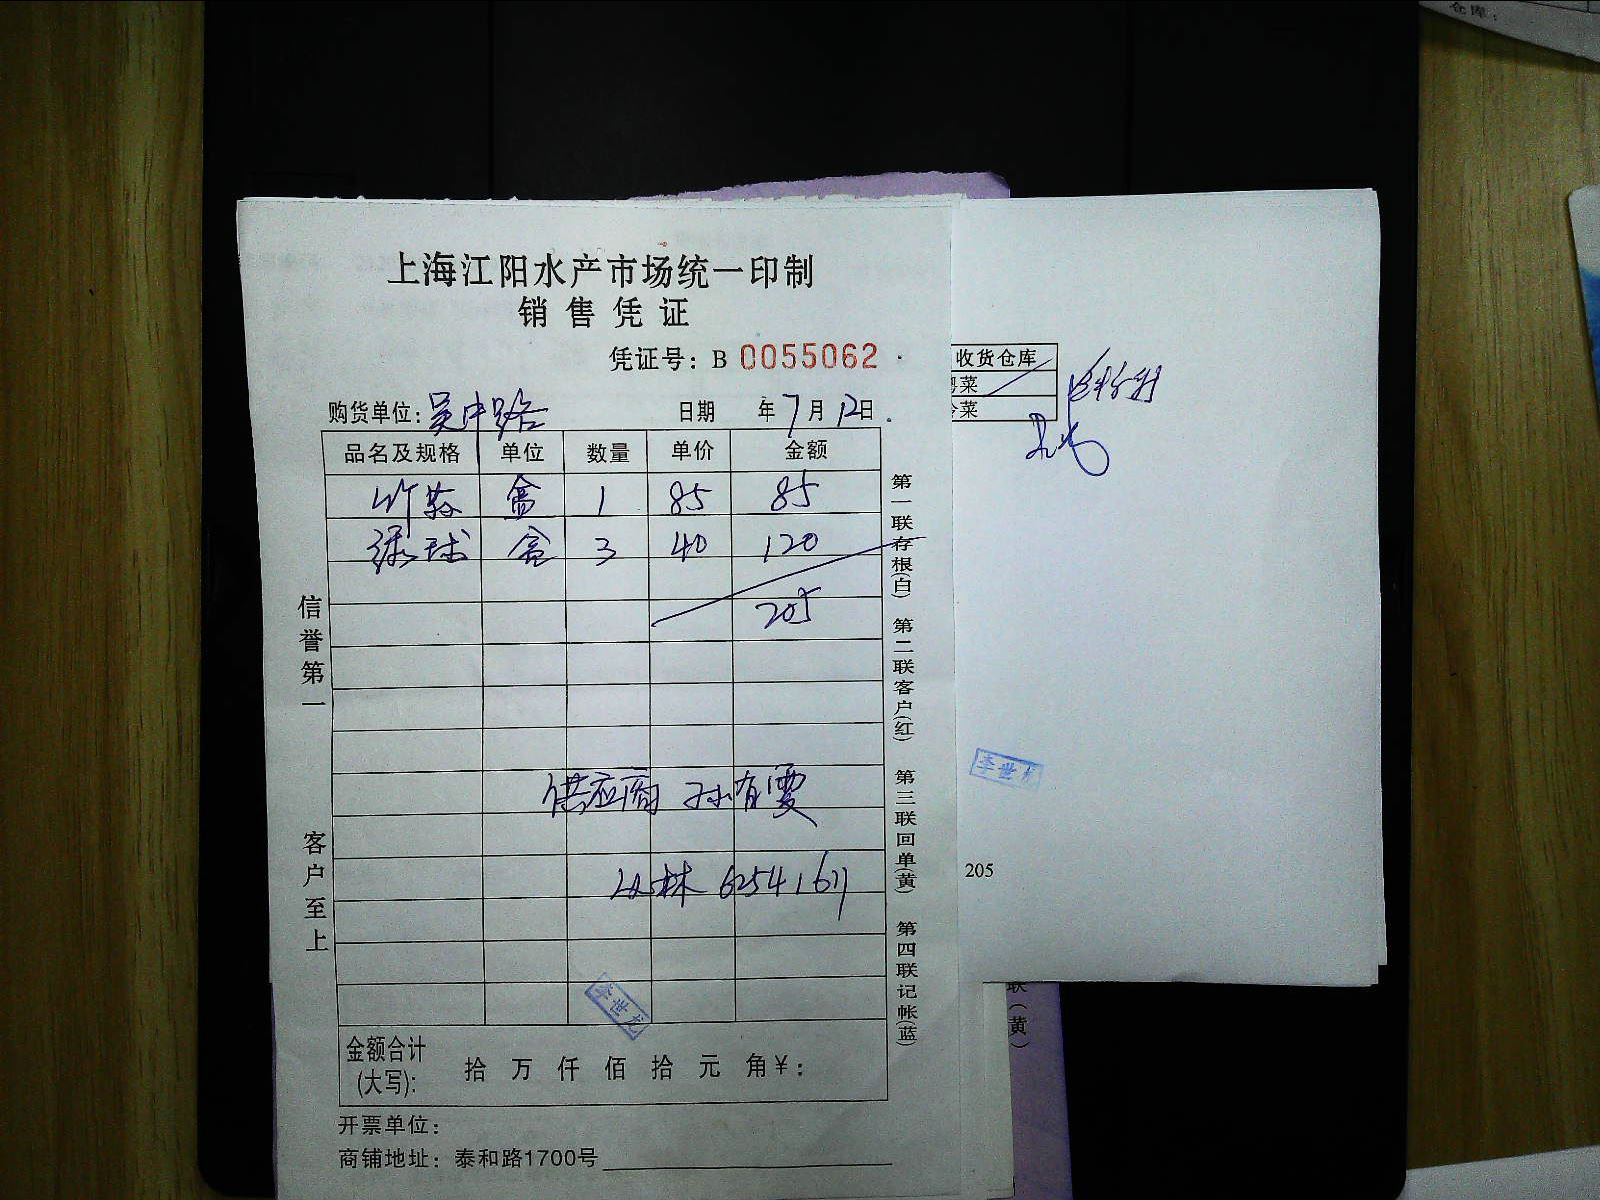 仓库:
上海江阳水产市场统一印制
销售凭证
凭证号: B 0055062
购货单位: 吴中路 日期 年 7 月 12 日
品名及规格 单位 数量 单价 金额
竹荪 盒 1 85 85
绿球 盒 3 40 120
205
供应商 孙有雯
丛林 62541611
金额合计
(大写): 拾 万 仟 佰 拾 元 角 ¥:
开票单位:
商铺地址: 泰和路1700号
信誉第一
客户至上
第一联存根(白) 第二联客户(红) 第三联回单(黄) 第四联记帐(蓝)
李世龙
收货仓库
粤菜
冷菜
李世龙
205
联(黄)